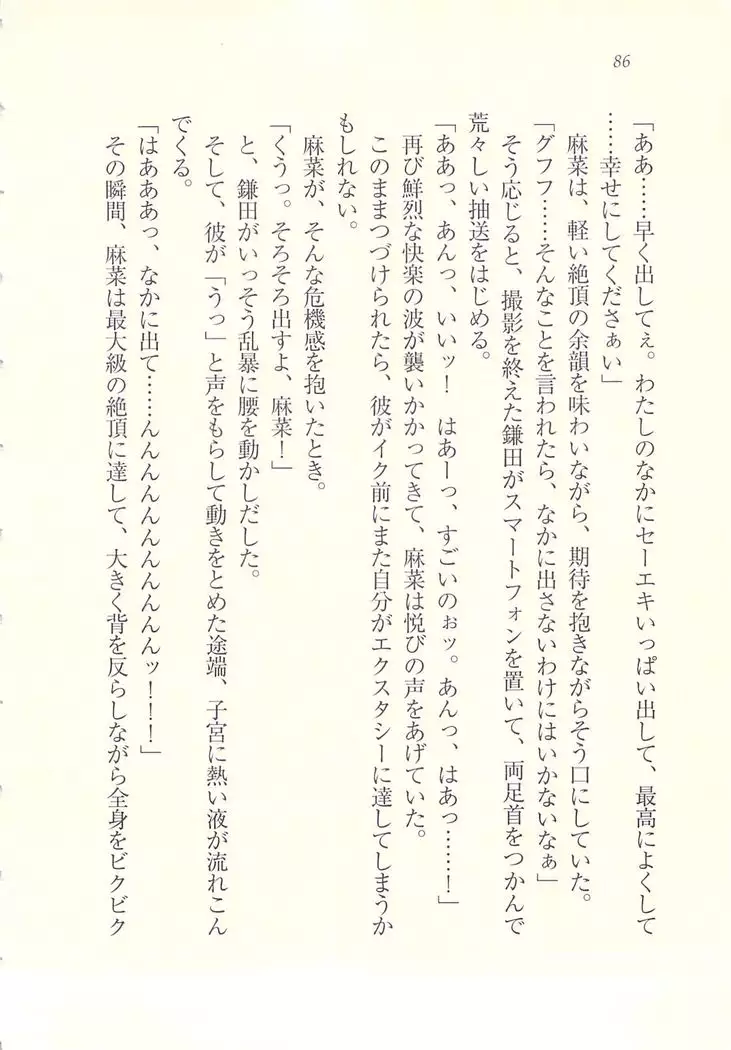 86
「ああ……早く出してぇ。わたしのなかにセーエキいっぱい出して、最高によくして
……幸せにしてくださぁい」
麻菜は、軽い絶頂の余韻を味わいながら、期待を抱きながらそう口にしていた。
「グフフ……そんなことを言われたら、なかに出さないわけにはいかないなぁ」
そう応じると、撮影を終えた鎌田がスマートフォンを置いて、両足首をつかんで
荒々しい抽送をはじめる。
「ああっ、あんっ、いいッ！　はあーっ、すごいのぉッ。あんっ、はあっ……！」
再び鮮烈な快楽の波が襲いかかってきて、麻菜は悦びの声をあげていた。
このままつづけられたら、彼がイク前にまた自分がエクスタシーに達してしまうか
もしれない。
麻菜が、そんな危機感を抱いたとき。
「くうっ。そろそろ出すよ、麻菜！」
と、鎌田がいっそう乱暴に腰を動かしだした。
そして、彼が「うっ」と声をもらして動きをとめた途端、子宮に熱い液が流れこん
でくる。
「はあああっ、なかに出て……んんんんんんんんんんッ！！！」
その瞬間、麻菜は最大級の絶頂に達して、大きく背を反らしながら全身をビクビク